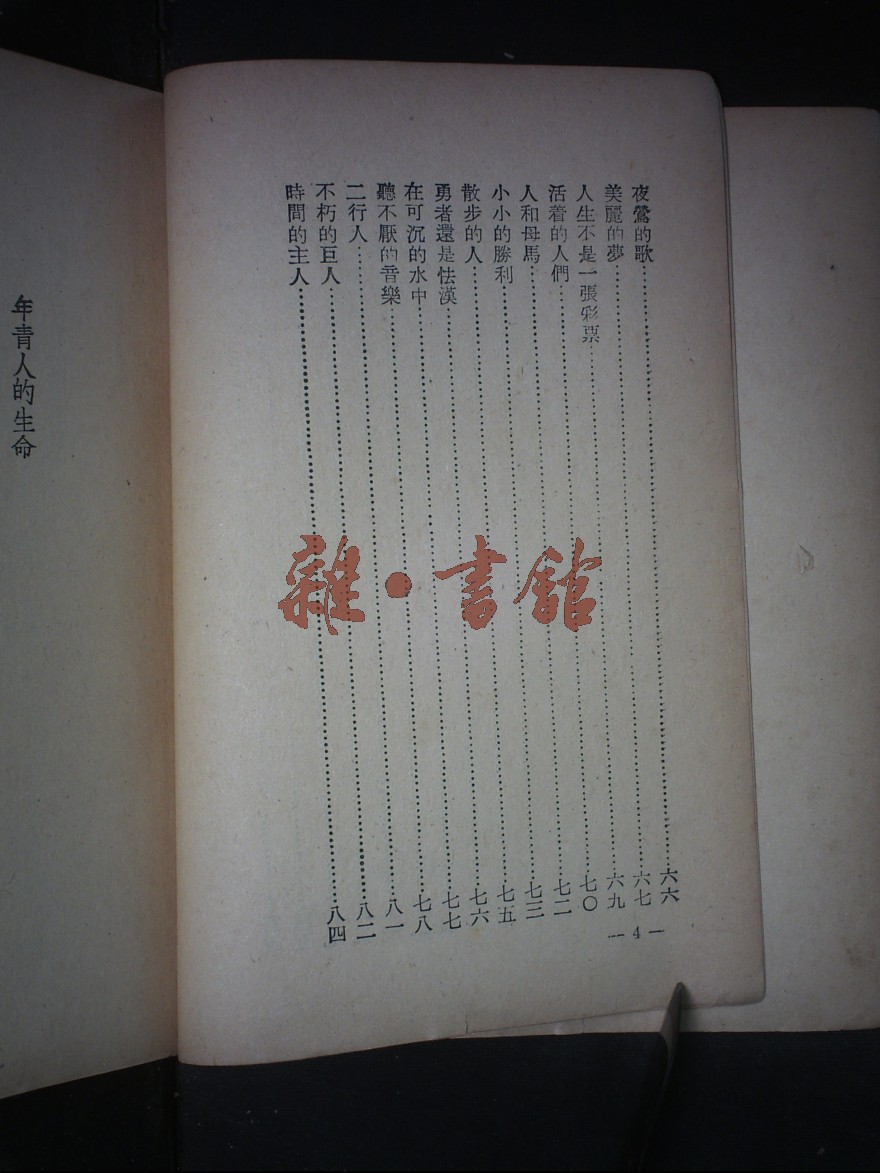 夜鶯的歌……六六
美麗的夢……六七
人生不是一張彩票……六九
活着的人們……七〇
人和母馬……七二
小小的勝利……七三
散步的人……七五
勇者還是怯漢……七六
在可沉的水中……七七
聽不厭的音樂……七八
二行人……八一
不朽的巨人……八二
時間的主人……八四
— 4 —
年青人的生命
雜·書館